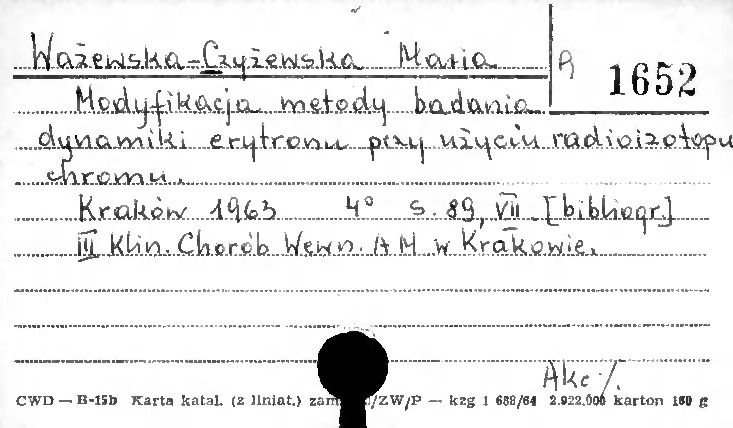 Ważewska-Czyżewska Maria
R 1652
Modyfikacja metody badania
dynamiki erytronu przy użyciu radioizotopu
chromu.
Kraków 1963 4° s. 89, VII [bibliogr.]
III Klin. Chorób Wewn. A M w Krakowie.
Akc /.
CWD — B-15b Karta katal. (z liniat.) /ZW/P — kzg 1 688/64 2.922.000 karton 160 g